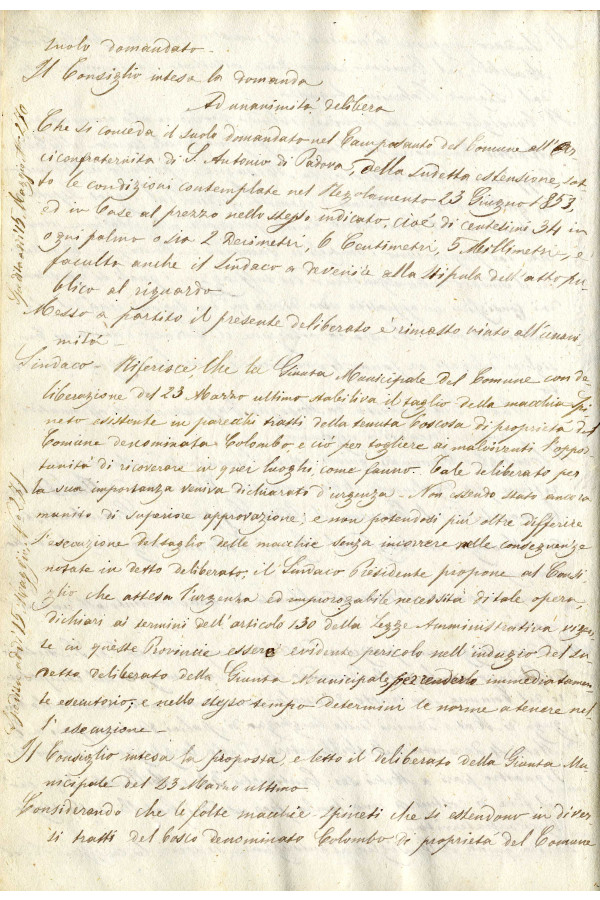 suolo domandato -
Il Consiglio intesa la domanda
Ad unanimità delibera
Che si conceda il suolo domandato nel Camposanto del Comune all'Ar
ciconfraternita di S. Antonio di Padova, della sudetta estensione, sot
to le condizioni contemplate nel Regolamento 23 Giugno 1853,
ed in base al prezzo nello stesso indicato, cioè di centesimi 34 in
ogni palmo o sia 2 Decimetri, 6 Centimetri, 5 Millimetri, e
faculta anche il Sindaco a devenire alla stipula dell'atto pu
blico al riguardo -
Messo a partito il presente deliberato è rimasto vinto all'unani
mità -
Sindaco - Riferisce, che la Giunta Municipale del Comune con de
liberazione del 23 Marzo ultimo stabiliva il taglio della macchia-spi
neto esistente in parecchi tratti della tenuta boscosa di proprietà del
Comune denominata Colombo, e ciò per togliere ai malviventi l'oppor
tunità di ricoverare in quei luoghi, come fanno. Tale deliberato per
la sua importanza veniva dichiarato d'urgenza - Non essendo stato ancora
munito di superiore approvazione, e non potendosi più oltre differire
l'esecuzione del taglio delle macchie senza incorrere nelle conseguenze
notate in detto deliberato, il Sindaco Presidente propone al Consi
glio che attesa l'urgenza ed improrogabile necessità di tale opera,
dichiari ai termini dell'articolo 130 della legge Amministrativa vigen
te in queste Provincie essere evidente pericolo nell'indugio del su
detto deliberato della Giunta Municipale per renderlo immediatamen
te esecutorio; e nello stesso tempo determini le norme a tenere nel
l'esecuzione -
Il Consiglio intesa la proposta, e letto il deliberato della Giunta Mu
nicipale del 23 Marzo ultimo -
Considerando che le folte macchie-spineti che si estendono in diver
si tratti del bosco denominato Colombo di proprietà del Comune